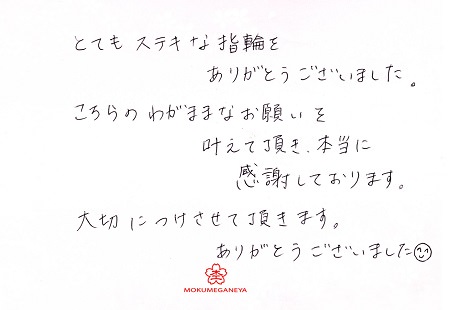 とてもステキな指輪を
ありがとうございました。
こちらのわがままなお願いを
叶えて頂き、本当に
感謝しております。
大切につけさせて頂きます。
ありがとうございました
MOKUMEGANEYA